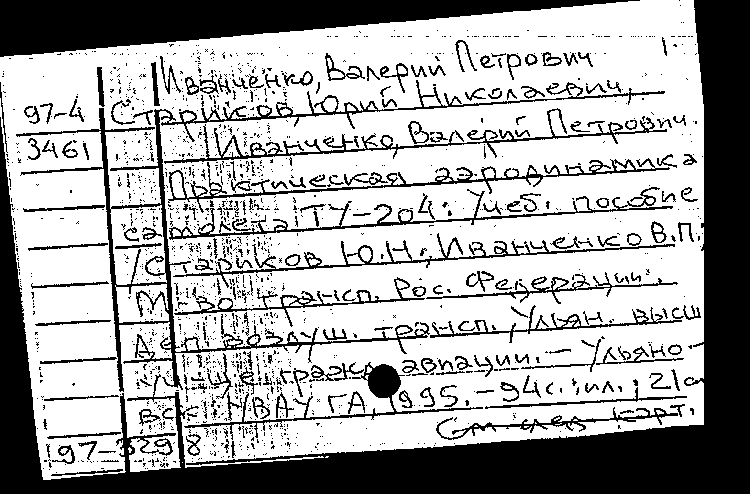 1.
Иванченко, Валерий Петрович
97-4 Стариков, Юрий Николаевич,
3461 Иванченко, Валерий Петрович.
Практическая аэродинамика
самолета ТУ-204: Учеб. пособие
/Стариков Ю.Н., Иванченко В.П.;
М-во трансп. Рос. Федерации.
Деп. воздуш. трансп., Ульян. высш
уч-ще гражд авиации. – Ульяно-
вск: УВАУ ГА, 1995. – 94с.: ил.; 21см
См след карт.
97-3298